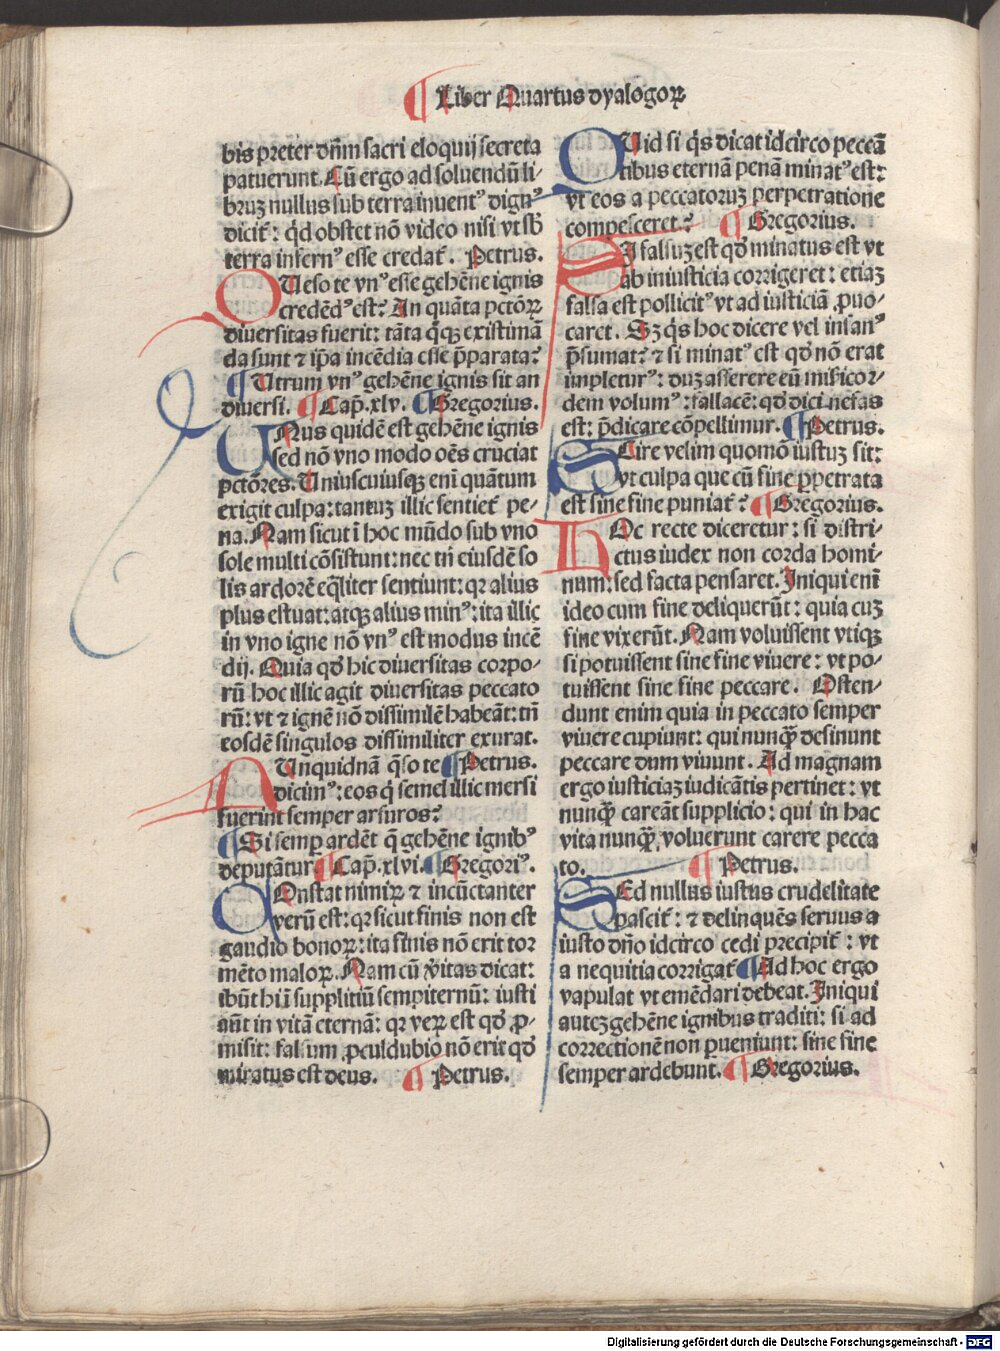 ¶Liber Quartus dyalogoꝝ
bis preter dn̄m sacri eloquij secreta
patuerunt. Cū ergo ad soluendū li-
bruꝫ nullus sub terra inuentꝰ dignꝰ
dicit᷑: qd̓ obstet nō video nisi vt sb̓
terra infernꝰ esse credat᷑. Petrus.
QUeso te vnꝰ esse gehēne ignis
credēdꝰ est? An quāta pctōꝝ
diuersitas fuerit: tāta qq̄ꝫ existimā
da sunt ⁊ ip̄a incēdia esse p̄parata?
¶Utrum vnꝰ gehēne ignis sit an
diuersi. ¶Cap̄. xlv. ¶Gregorius.
UNus quidē est gehēne ignis
sed nō vno modo oēs cruciat
pctōres. Uniuscuiusqꝫ eni quātum
exigit culpa: tantuꝫ illic sentiet᷑ pe-
na. Nam sicut i hoc mūdo sub vno
sole multi cōsistunt: nec tn̄ eiusdē so
lis ardorē eq̄liter sentiunt: qꝛ alius
plus estuat: atqꝫ alius minꝰ: ita illic
in vno igne nō vnꝰ est modus incē
dij. Quia qd̓ hic diuersitas corpo-
rū hoc illic agit diuersitas peccato
rū: vt ⁊ ignē nō dissimilē habeāt: tn̄
eosdē singulos dissimiliter exurat.
AUnquidnā q̄so te ¶Petrus.
dicimꝰ: eos q̄ semel illic mersi
fuerint semper arsuros?
¶Si semꝑ ardēt q̄ gehēne ignibꝰ
deputātur. ¶Cap̄. xlvi. ¶Gregoriꝰ.
COnstat nimiꝝ ⁊ incūctanter
verū est: qꝛ sicut finis non est
gaudio bonoꝝ: ita finis nō erit tor
mēto maloꝝ. Nam cū v̓itas dicat:
ibūt hij ī suppliciū sempiternū: iusti
aūt in vitā eternā: qꝛ veꝝ est qd̓ ꝓ-
misit: falsum ꝓculdubio nō erit qd̓
minatus est deus. ¶Petrus.
QUid si qs̓ dicat idcirco peccā
tibus eternā penā minatꝰ est:
vt eos a peccatoruꝫ perpetratione
compesceret? ¶Gregorius.
SI falsuꝫ est qd̓ minatus est vt
ab iniusticia corrigeret: etiaꝫ
falsa est pollicitꝰ vt ad iusticiā ꝓuo-
caret. Sꝫ qs̓ hoc dicere vel insanꝰ
p̄sumat? ⁊ si minatꝰ est qd̓ nō erat
impleturꝰ: duꝫ asserere eū misicor-
dem volumꝰ: fallacē: qd̓ dici nefas
est: p̄dicare cōpellimur. ¶Petrus.
SCire velim quomō iustuꝫ sit:
vt culpa que cū fine ꝑpetrata
est sine fine puniat᷑? ¶Gregorius.
HOc recte diceretur: si distri-
ctus iudex non corda homi-
num: sed facta pensaret. Iniqui eni
ideo cum fine deliquerūt: quia cuꝫ
fine vixerūt. Nam voluissent vtiqꝫ
si potuissent sine fine viuere: vt po-
tuissent sine fine peccare. Osten-
dunt enim quia in peccato semper
viuere cupiunt: qui nunqꝫ̄ desinunt
peccare dum viuunt. Ad magnam
ergo iusticiaꝫ iudicātis pertinet: vt
nunqꝫ̄ careāt supplicio: qui in hac
vita nunqꝫ̄ voluerunt carere pecca
to. ¶Petrus.
SEd nullus iustus crudelitate
pascit᷑: ⁊ delinquēs seruus a
iusto dn̄o idcirco cedi precipit᷑: vt
a nequitia corrigat᷑ ¶Ad hoc ergo
vapulat vt emēdari debeat. Iniqui
auteꝫ gehēne ignibus traditi: si ad
correctionē non ꝑueniunt: sine fine
semper ardebunt. ¶Gregorius.
Digitalisierung gefördert durch die Deutsche Forschungsgemeinschaft - DFG